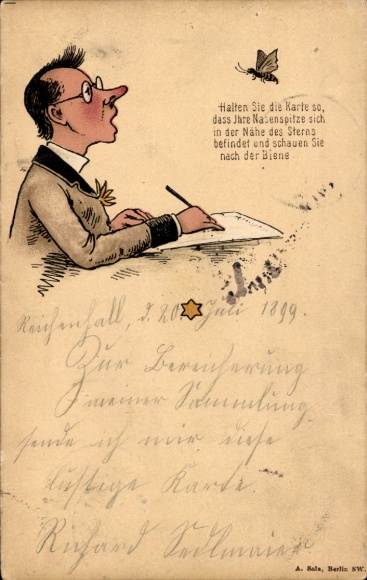 Halten Sie die Karte so,
dass Jhre Nasenspitze sich
in der Nähe des Sterns
befindet und schauen Sie
nach der Biene
Reichenhall, d. 20 Juli 1899.
Zur Bereicherung
meiner Sammlung
sende ich mir diese
lustige Karte.
Richard Sedlmaier
A. Sala, Berlin SW.